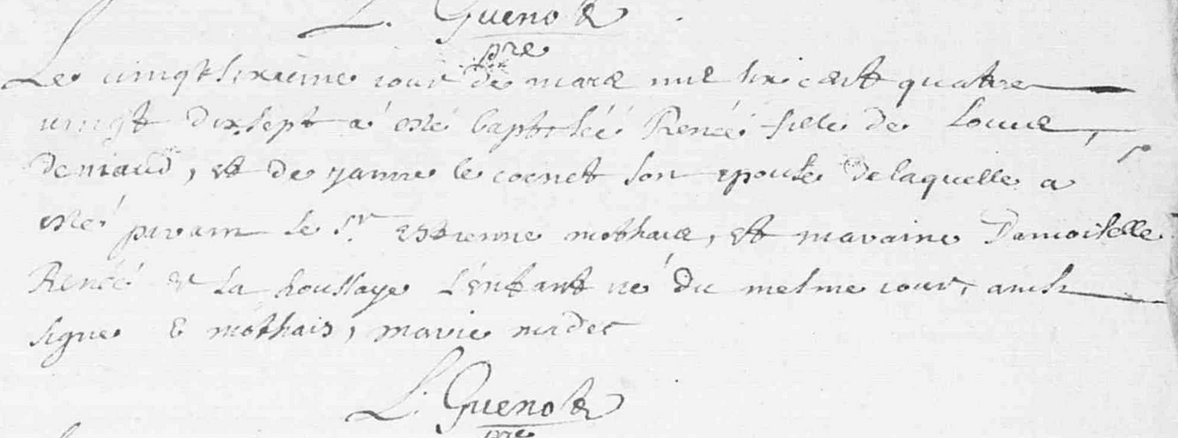 L. Guenole
pre
Le vingt sixieme iour de mars mil six cent quatre
vingt dix sept a esté baptisée Renée fille de Louis
Deniaud, et de janne le cornet son epouse de laquelle a
esté parain le Sr. Estienne mothais, et maraine Damoiselle
Renée de la houssaye l'enfant né du mesme iour, ainsi
signé E mothais, marie
L. Guenole
pre